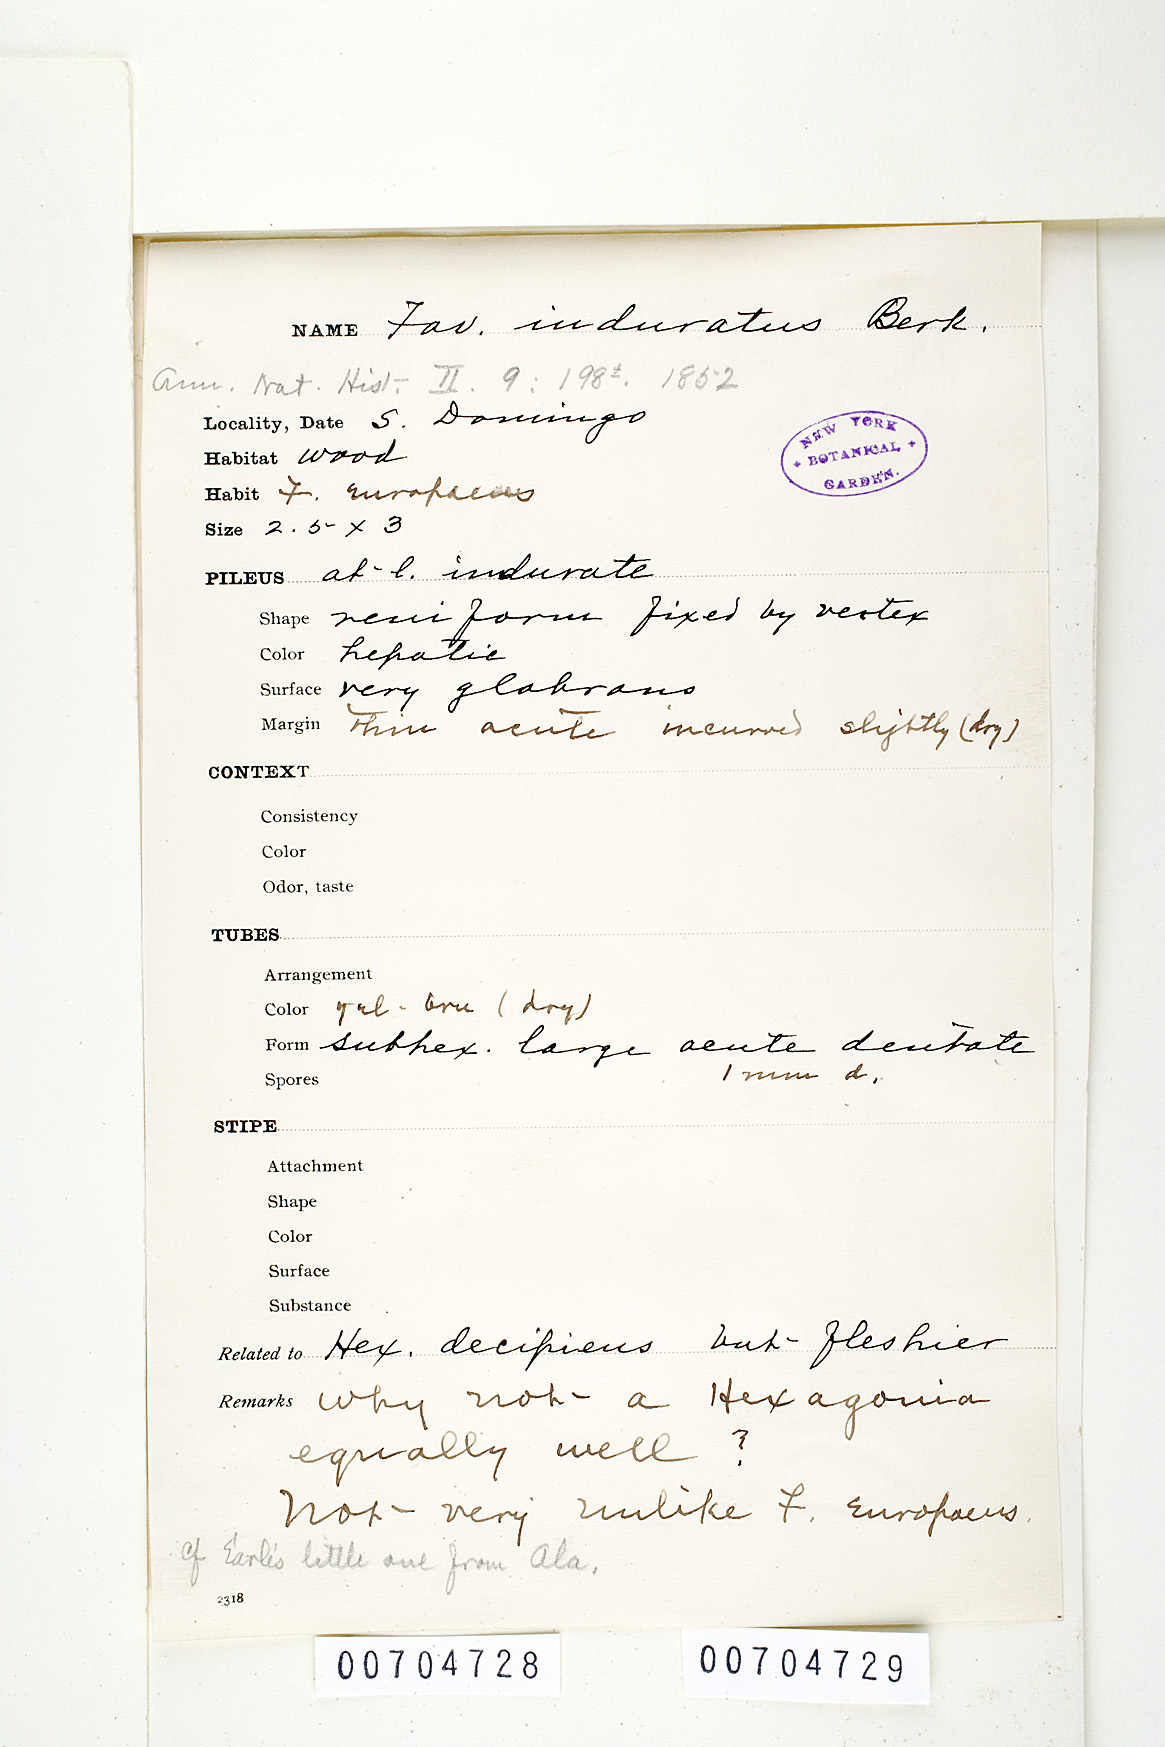 NAME Fav. induratus Berk.
Ann. Nat. Hist. II. 9: 198±. 1852
Locality, Date S. Domingo
NEW YORK
BOTANICAL
GARDEN.
Habitat wood
Habit F. Europaeus
Size 2.5 x 3
PILEUS at-l. indurate
Shape reniform fixed by vertex
Color hepatic
Surface very glabrous
Margin thin acute incurved slightly (dry)
CONTEXT
Consistency
Color
Odor, taste
TUBES
Arrangement
Color yel-brn (dry)
Form subhex. large acute dentate
1 mm d.
Spores
STIPE
Attachment
Shape
Color
Surface
Substance
Related to Hex. decipiens but fleshier
Remarks Why not a Hexagonia
equally well ?
Not very unlike F. Europaeus.
cf Earle's little one from Ala.
2318
00704728
00704729